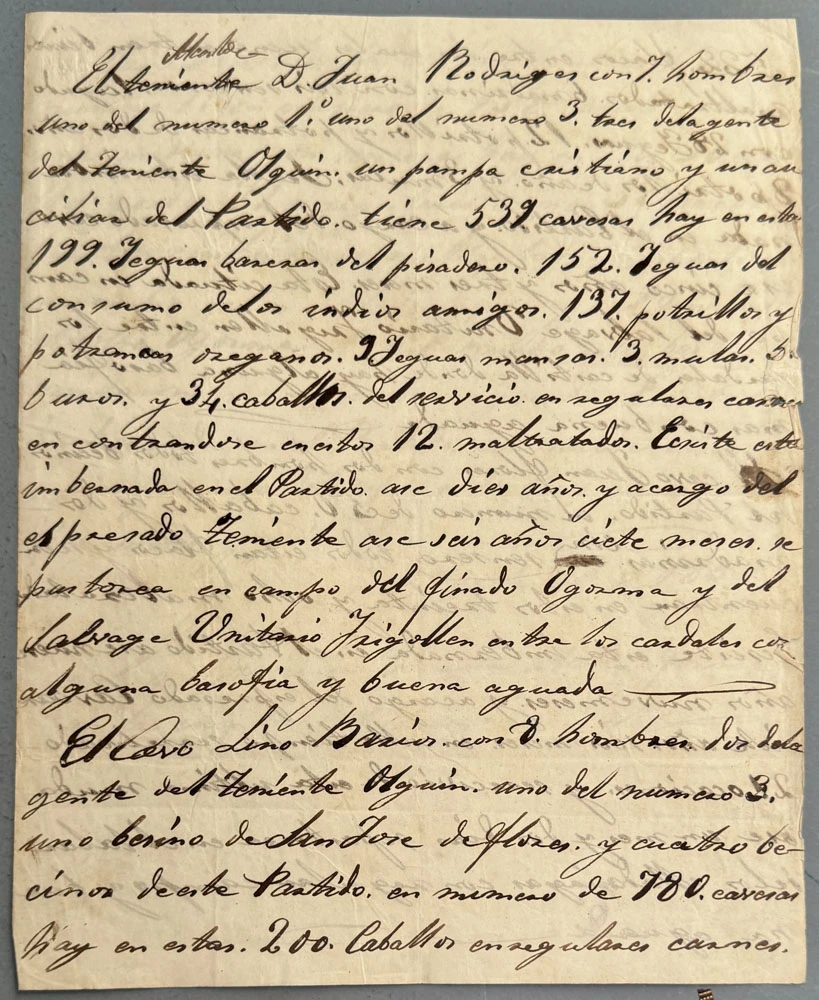 Alcalde
El teniente D. Juan Rodriges con 7. hombres
uno del numero 1.º uno del numero 3. tres dela gente
del Teniente Olguin. un pampa cristiano y un au
ciliar del Partido. tiene 539. cavesas hay en esta
199. Jeguas baseras del pisadero. 152. Jeguas del
consumo delos indios amigos. 137. potrillos y
potrancas oreganos. 9 Jeguas mansas. 3. mulas. 5.
buros. y 34. caballos. del servicio en regulares carnes
en contrandose en estos 12. maltratados. Ecsiste esta
imbernada en el Partido. ase dies años. y acargo del
espresado Teniente ase seis años ciete meses. se
pastorea en campo del finado Ogorma y del
Salvage Unitario Frigollen entre los cardales con
alguna basofia y buena aguada
El Cavo Lino Barios. con 8. hombres. dos dela
gente del Teniente Olguin. uno del numero 3.
uno besino de San Jose de flores. y cuatro be-
cinos de este Partido. en numero de 780. cavesas
hay en estas. 200. Caballos en regulares carnes.